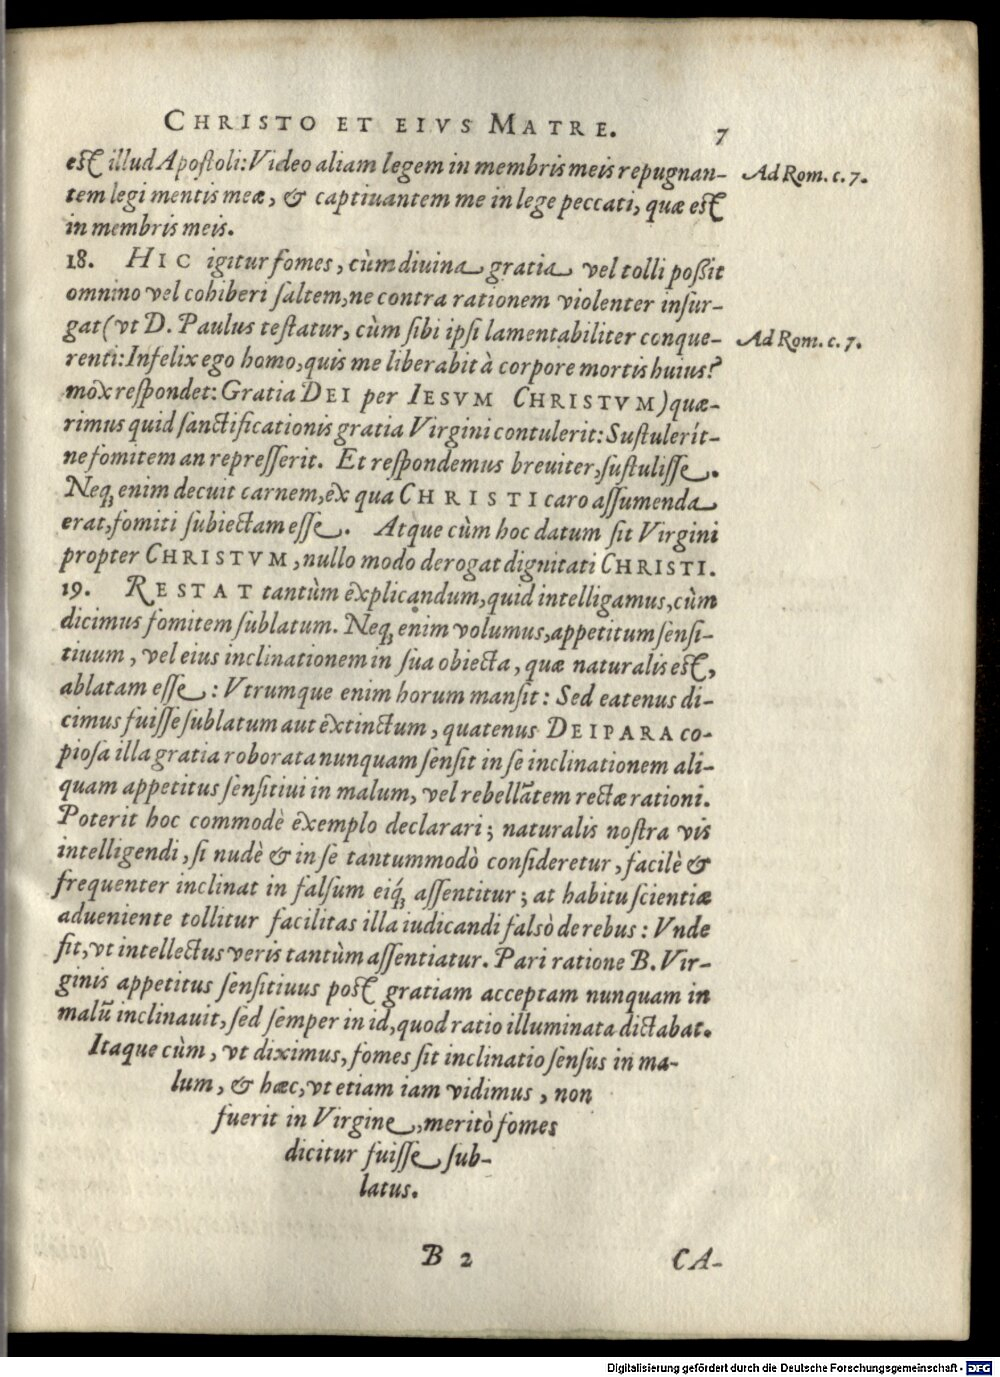 CHRISTO ET EIVS MATRE. 7
est illud Apostoli: Video aliam legem in membris meis repugnan- Ad Rom. c. 7.
tem legi mentis meæ, & captiuantem me in lege peccati, quæ est
in membris meis.
18. HIC igitur fomes, cùm diuina gratia vel tolli poßit
omnino vel cohiberi saltem, ne contra rationem violenter insur-
gat (vt D. Paulus testatur, cùm sibi ipsi lamentabiliter conque- Ad Rom. c. 7.
renti: Infelix ego homo, quis me liberabit à corpore mortis huius?
mox respondet: Gratia DEI per IESVM CHRISTVM) quæ-
rimus quid sanctificationis gratia Virgini contulerit: Sustulerít-
ne fomitem an represserit. Et respondemus breuiter, sustulisse.
Neq; enim decuit carnem, ex qua CHRISTI caro assumenda
erat, fomiti subiectam esse. Atque cùm hoc datum sit Virgini
propter CHRISTVM, nullo modo derogat dignitati CHRISTI.
19. RESTAT tantùm explicandum, quid intelligamus, cùm
dicimus fomitem sublatum. Neq; enim volumus, appetitum sensi-
tiuum, vel eius inclinationem in sua obiecta, quæ naturalis est,
ablatam esse: Vtrumque enim horum mansit: Sed eatenus di-
cimus fuisse sublatum aut extinctum, quatenus DEIPARA co-
piosa illa gratia roborata nunquam sensit in se inclinationem ali-
quam appetitus sensitiui in malum, vel rebellātem rectæ rationi.
Poterit hoc commodè exemplo declarari; naturalis nostra vis
intelligendi, si nudè & in se tantummodò consideretur, facilè &
frequenter inclinat in falsum eiq́; assentitur; at habitu scientiæ
adueniente tollitur facilitas illa iudicandi falsò de rebus: Vnde
fit, vt intellectus veris tantùm assentiatur. Pari ratione B. Vir-
ginis appetitus sensitiuus post gratiam acceptam nunquam in
malū inclinauit, sed semper in id, quod ratio illuminata dictabat.
Itaque cùm, vt diximus, fomes sit inclinatio sensus in ma-
lum, & hæc, vt etiam iam vidimus, non
fuerit in Virgine, meritò fomes
dicitur fuisse sub-
latus.
B 2 CA-
Digitalisierung gefördert durch die Deutsche Forschungsgemeinschaft - DFG